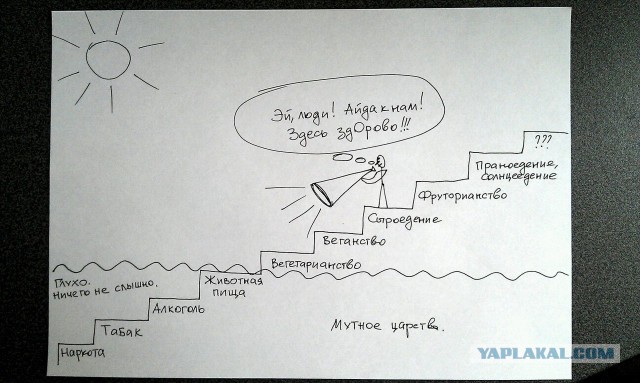 Эй, люди! Айда к нам!
Здесь здОрово!!!
???
Праноедение,
солнцеедение
Фруторианство
Сыроедение
Веганство
Вегетарианство
Глухо.
Ничего не слышно.
Животная
пища
Алкоголь
Табак
Наркота
Мутное царство.
YAPLAKAL.COM